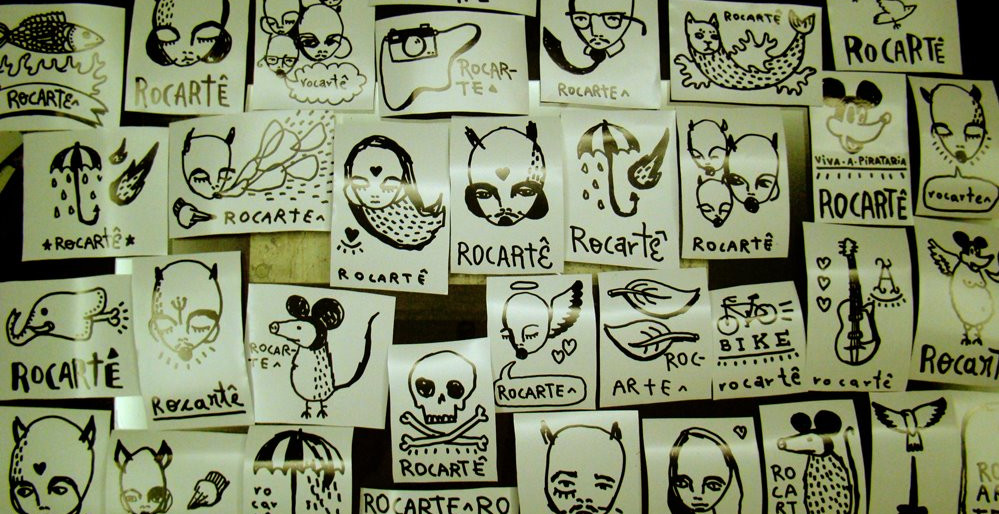 ROCARTÊ
ROCARTÊ
rocartê
ROCAR-
TÊ
ROCARTE^
ROCARTÊ
ROCARTÊ
VIVA.A.PIRATARIA
ROCARTÊ
rocarte^
*ROCARTÊ*
ROCARTE^
ROCARTÊ
ROCARTÊ
Rocartê
ROCARTÊ
ROCARTÊ
Rocartê
ROCAR-
TE^
ROCARTÊ
ROCARTE^
ROC-
ARTE^
BIKE
rocartê
rocartê
ROCART
ro
car
ROCARTE^RO
RO
CA
RT